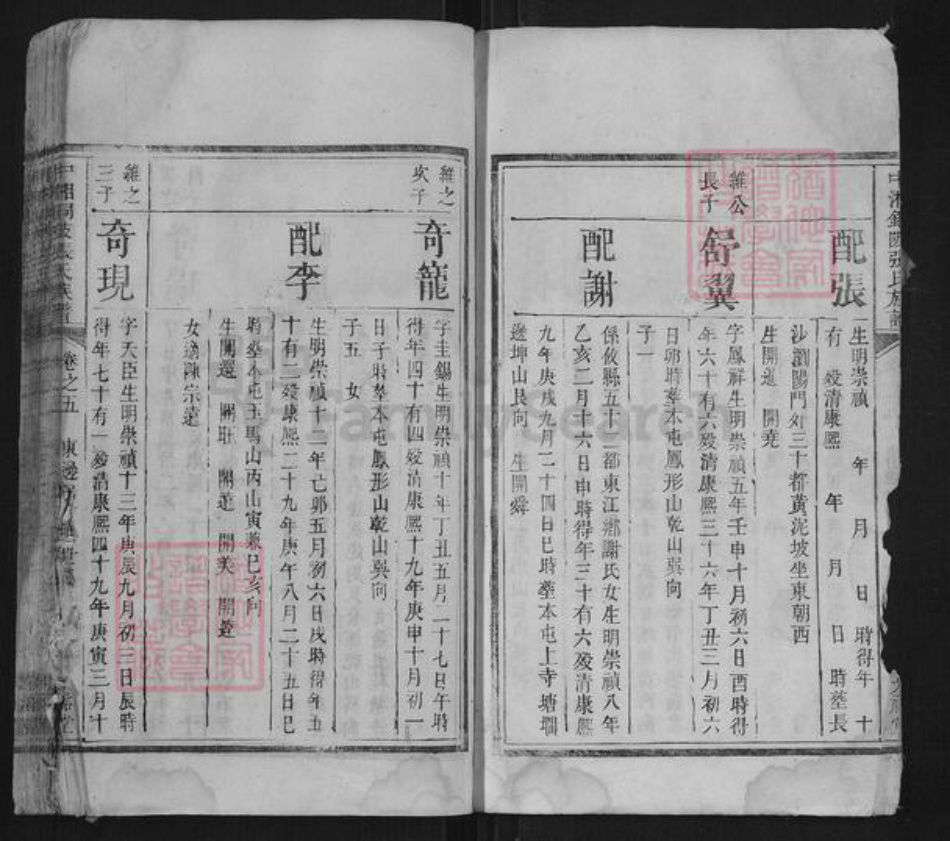 配張
生明崇禎 年 月 日 時得年 十
有 歿清康熙 年 月 日 時塟長
沙瀏陽門外三十都黃泥坡坐東朝西
生開運 開堯
維公
長子
舒翼
字鳳祥生明崇禎五年壬申十月初六日酉時得
年六十有六歿清康熙三十六年丁丑三月初六
日卯時塟本屯鳳形山乾山巽向
子一
配謝
係攸縣五十二都東江鄉謝氏女生明崇禎八年
乙亥二月十六日申時得年三十有六歿清康熙
九年庚戌九月二十四日巳時塟本屯上寺塘墈
邊坤山艮向 生開舜
維之
次子
奇龍
字圭錫生明崇禎十年丁丑五月二十七日午時
得年四十有四歿清康熙十九年庚申十月初一
日子時塟本屯鳳形山乾山巽向
子五 女
配李
生明崇禎十二年己卯五月初六日戌時得年五
十有二歿康熙二十九年庚午八月二十五日巳
時塟本屯玉馬山丙山寅兼巳亥向
生開選 開旺 開蓮 開美
女適陳宗遠
維之
三子
奇現
字天臣生明崇禎十三年庚辰九月初三日辰時
得年七十有一歿清康熙四十九年庚寅三月十
張氏族譜 卷之五